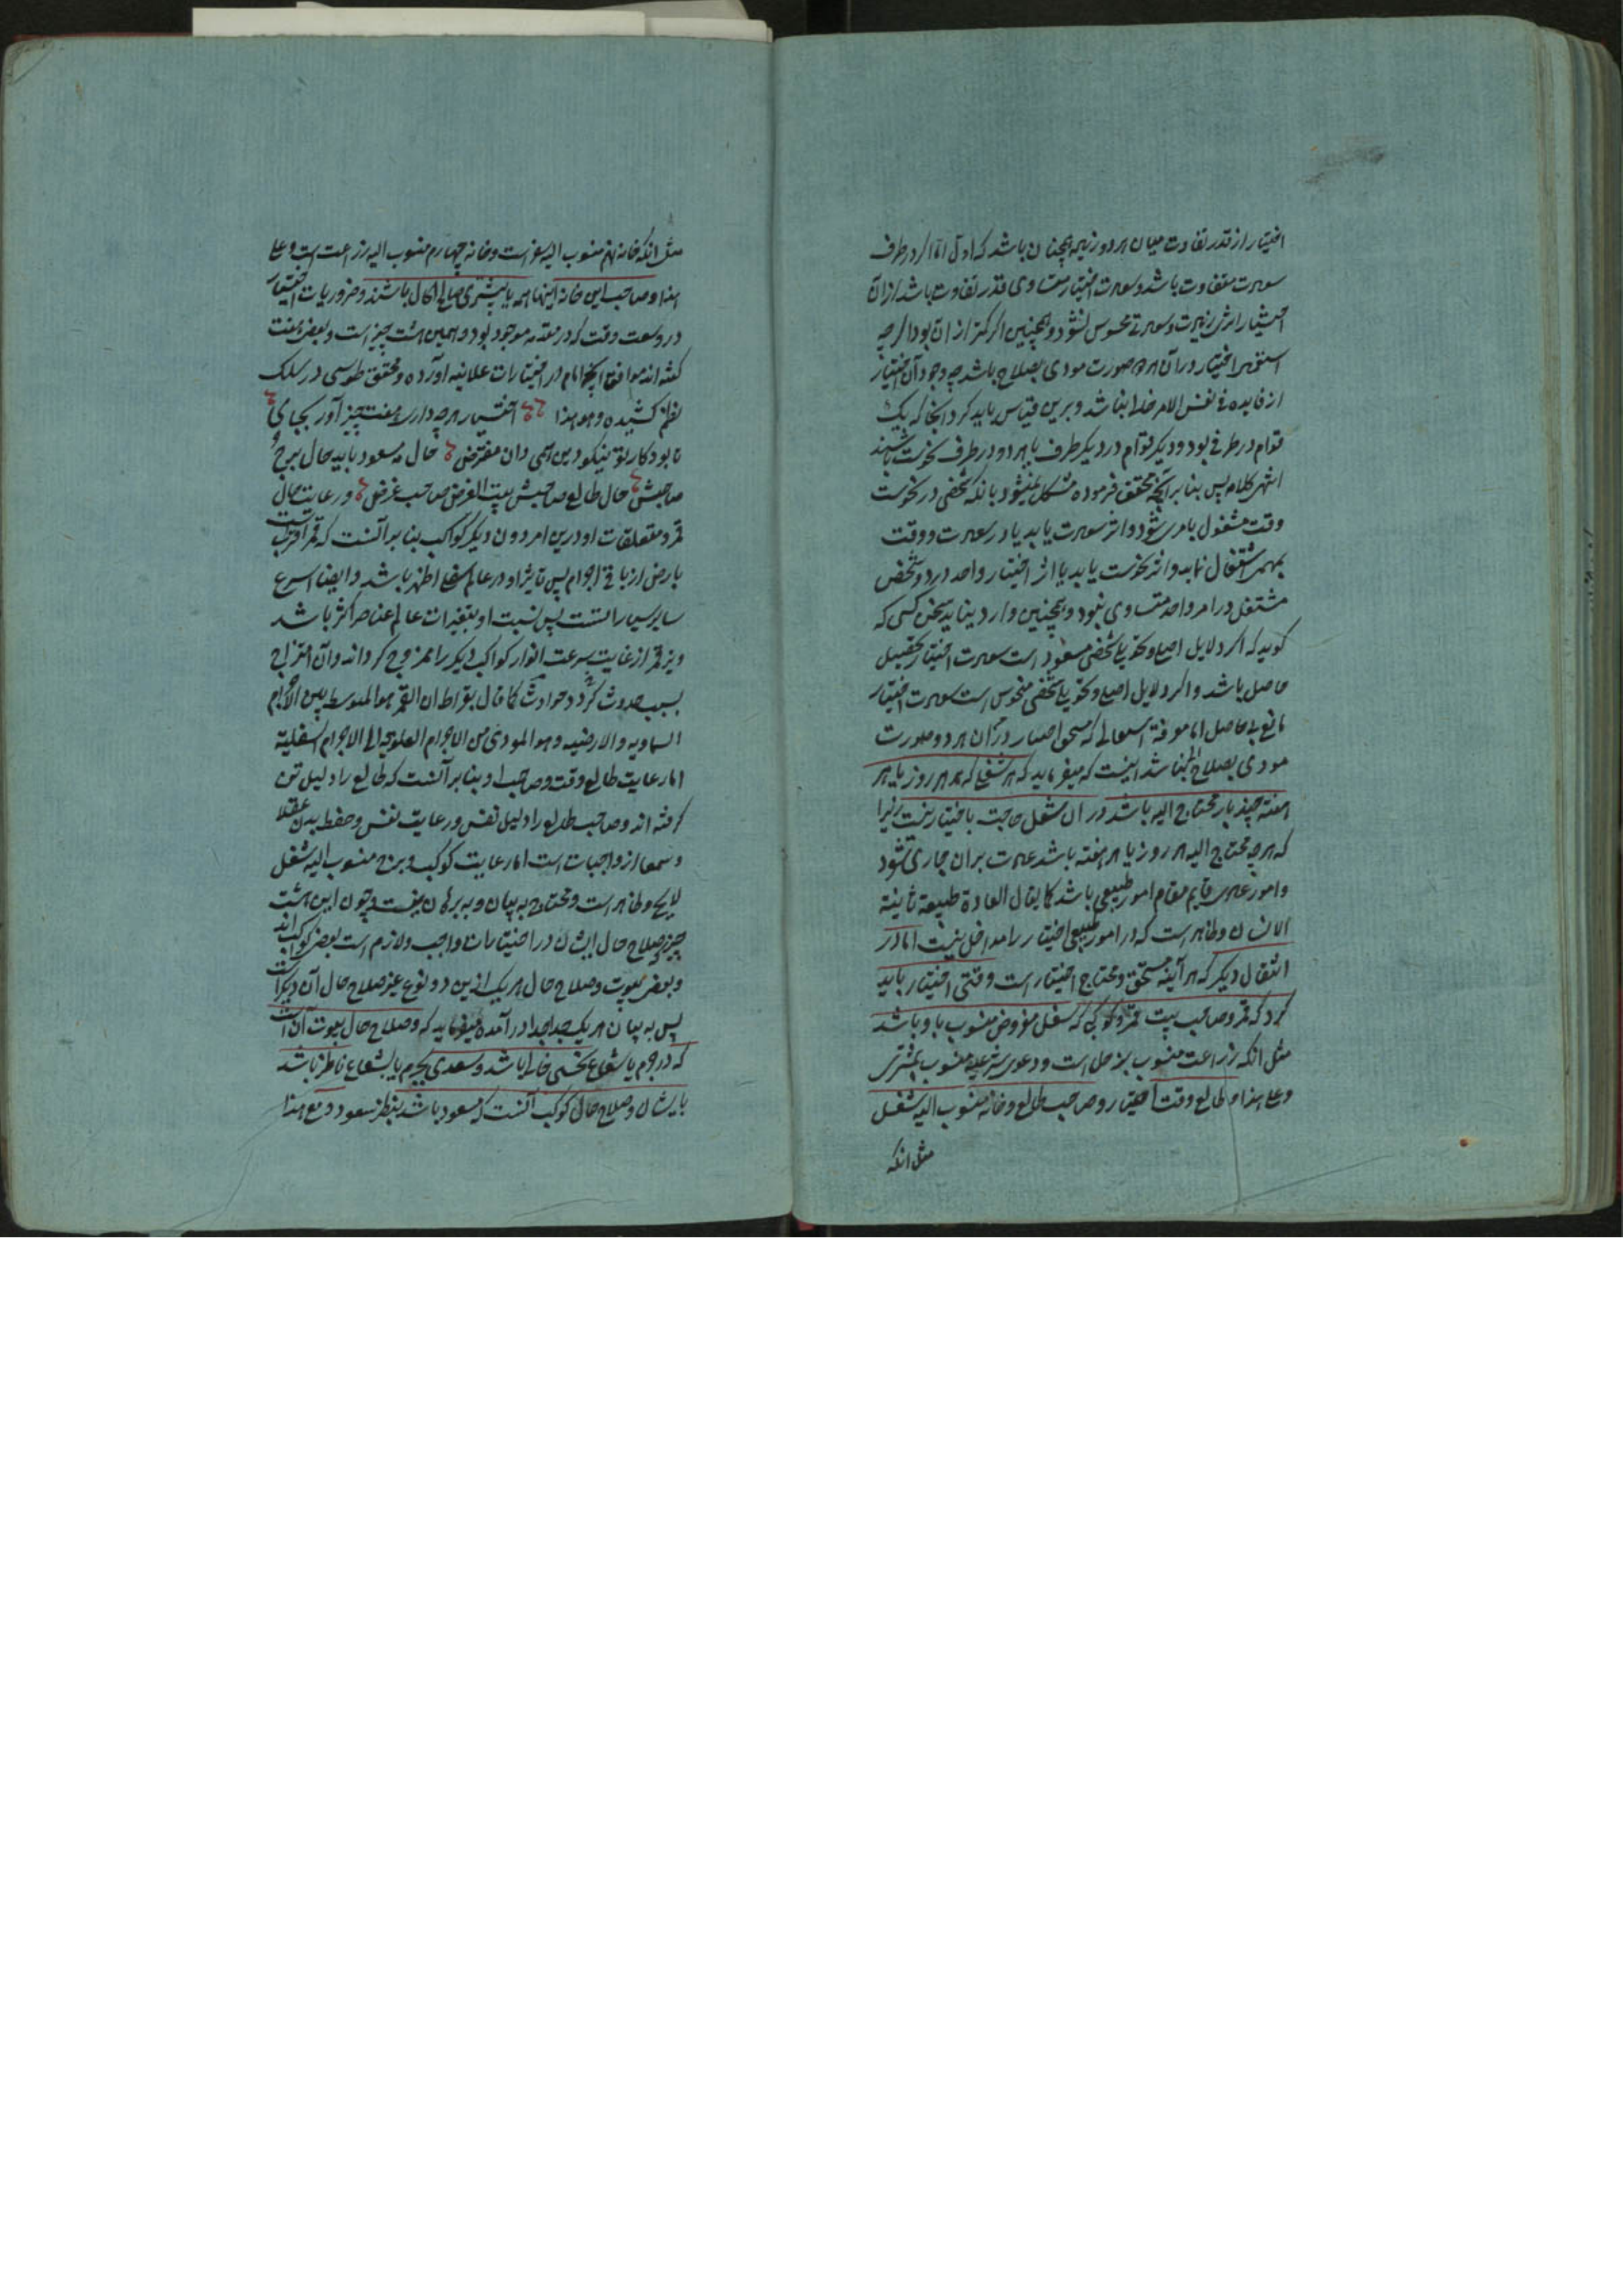 اختیار از قدر تفاوت میان هر دو زیرا همچنان باشد که اول اما اگر در طرف
سعدیت متفاوت باشد و سعدیت اختیار مساوی قدر تفاوت باشد از آن
اختیار اثری نیست و سعدیتی محسوس نشود و همچنین اگر کمتر از آن بود اگرچه
استمرار اختیار در آن هر دو صورت مودی بصلاح باشد چه وجود آن اختیار
از فایده فی نفس الامر خالی نباشد و برین قیاس باید کرد انجا که یک
قوام در طرفی بود و دیگر قوام در دیگر طرف یا هر دو در طرف نحوست باشند
انتهی کلامه پس بنا بر آنچه محقق فرموده مشکل نمیشود بانکه شخصی در نحوست
وقت مشغول بامری شود و اثر سعدیت یابد یا در سعدیت وقت
بمهمی اشتغال نماید و اثر نحوست یابد یا اثر اختیار واحد در دو شخص
مشتغل در امر واحد متساوی نبود و همچنین وارد نیاید سخن کسی که
گوید که اگر دلایل اصلی و تحویلی شخصی مسعود است سعدیت اختیار تحصیل
حاصل باشد و اگر دلایل اصلی و تحویلی شخصی منحوس است سعدیت اختیار
مودی بصلاح نباشد اینست که میفرماید که هر شغلی که هر روز یا هر
هفته چند بار محتاج الیه باشد در آن شغل حاجت باختیار نیست زیرا
که هر چه محتاج الیه هر روز یا هر هفته باشد عادت بران جاری شود
و امور عادی قایم مقام امور طبیعی باشد کما یقال العادة طبیعة ثانیة
الانسان و ظاهر است که در امور طبیعی اختیار را مدخل نیست اما در
اشغال دیگر که هر آینه مستحق و محتاج اختیار است وقتی اختیار باید
کرد که قمر و صاحب بیت قمر و کوکبی که شغل مفروض منسوب باو باشد
مثل انکه زراعت منسوب بزحل است و دعوی شرعیه منسوب بمشتری
و علی هذا و طالع وقت اختیار و صاحب طالع و خانه منسوب الیه شغل
مثل انکه
مثل انکه خانه نهم منسوب الیه سفر است و خانه چهارم منسوب الیه زراعت است و علی
هذا و صاحب این خانه اینها همه یا بیشتری صالح الحال باشند و ضروریات اختیار
در وسعت وقت که در مقدمه موجود بود و همین هشت چیز است و بعضی هفت
گفته اند موافق آنچه امام در اختیارات علائیه آورده و محقق طوسی در سلک
نظم کشیده و هو هذا اختیار هر چه داری هفت چیز آور بجای
تا بود کار تو نیکو درین همی دان مفترض حال مه مسعود باید حال برج و
صاحبش حال طالع صاحبش بیت الغرض صاحب غرض و رعایت حال
قمر و متعلقات او درین امر دون دیگر کواکب بنا بر آنست که قمر اقربست
بارض از باقی اجرام پس تاثیر او در عالم سفلی اظهر باشد و ایضا اسرع
سایر سیارات است پس نسبت او بتغیرات عالم عناصر اکثر باشد
و نیز قمر از غایت سرعت انوار کواکب دیگر را ممزوج گرداند و آن امتزاج
بسبب حدوث گردد حوادث کما قال بقراط ان القمر هو المتوسط بین الاجرام
السماویه و الارضیه و هو المودی من الاجرام العلویة الی الاجرام السفلیة
اما رعایت طالع وقت و صاحب او بنا بر آنست که طالع را دلیل تن
گرفته اند و صاحب طالع را دلیل نفس و رعایت نفس و حفظ بدن عقلا
و سمعا از واجبات است اما رعایت کوکب و برج منسوب الیه شغل
لایح و ظاهر است و محتاج به بیان و به برهان نیست و چون این هشت
چیز که صلاح حال ایشان در اختیارات واجب و لازم است بعضی کوکب اند
و بعضی بیوت و صلاح حال هر یک ازین دو نوع غیر صلاح حال آن دیگر است
پس به بیان هر یک جدا جدا در آمده میفرماید که و صلاح حال بیوت آن است
که در جرم یا شعاع نحسی خالی باشد و سعدی بجرم یا بشعاع ناظر باشد
بایشان و صلاح حال کوکب آنست که مسعود باشد بنظر سعود و مع هذا